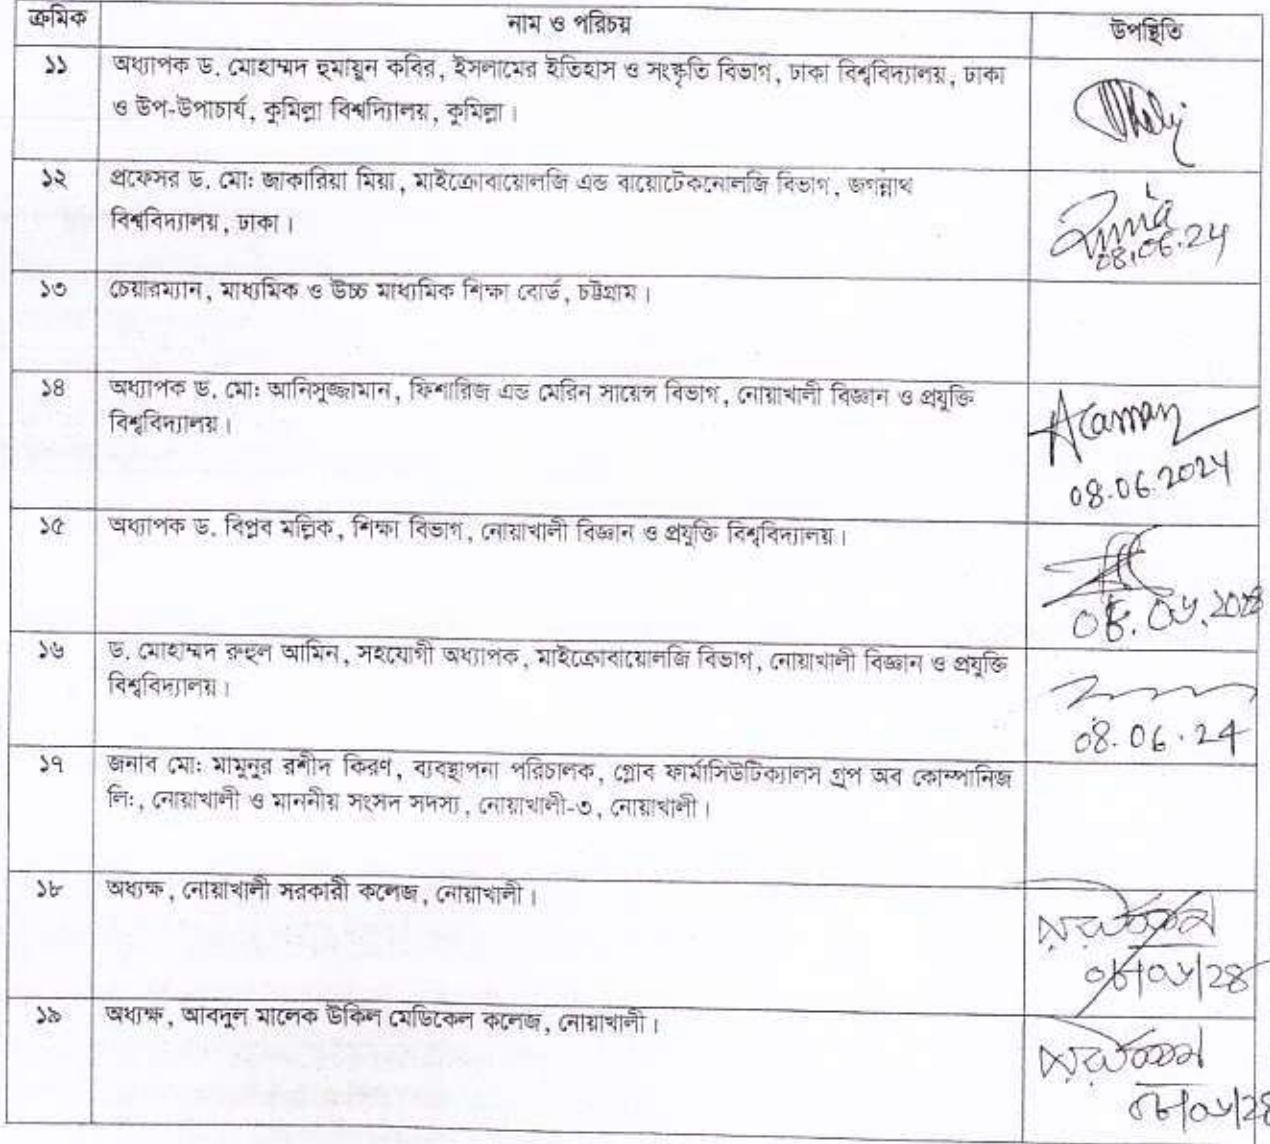 ক্রমিক নাম ও পরিচয় উপস্থিতি
১১ অধ্যাপক ড. মোহাম্মদ হুমায়ুন কবির, ইসলামের ইতিহাস ও সংস্কৃতি বিভাগ, ঢাকা বিশ্ববিদ্যালয়, ঢাকা
ও উপ-উপাচার্য, কুমিল্লা বিশ্বদ্যিালয়, কুমিল্লা।
১২ প্রফেসর ড. মো: জাকারিয়া মিয়া, মাইক্রোবায়োলজি এন্ড বায়োটেকনোলজি বিভাগ, জগন্নাথ
বিশ্ববিদ্যালয়, ঢাকা।
08.06.24
১৩ চেয়ারম্যান, মাধ্যমিক ও উচ্চ মাধ্যমিক শিক্ষা বোর্ড, চট্টগ্রাম।
১৪ অধ্যাপক ড. মো: আনিসুজ্জামান, ফিশারিজ এন্ড মেরিন সায়েন্স বিভাগ, নোয়াখালী বিজ্ঞান ও প্রযুক্তি
বিশ্ববিদ্যালয়।
08.06.2024
১৫ অধ্যাপক ড. বিপ্লব মল্লিক, শিক্ষা বিভাগ, নোয়াখালী বিজ্ঞান ও প্রযুক্তি বিশ্ববিদ্যালয়।
১৬ ড. মোহাম্মদ রুহুল আমিন, সহযোগী অধ্যাপক, মাইক্রোবায়োলজি বিভাগ, নোয়াখালী বিজ্ঞান ও প্রযুক্তি
বিশ্ববিদ্যালয়।
08.06.24
১৭ জনাব মো: মামুনুর রশীদ কিরণ, ব্যবস্থাপনা পরিচালক, গ্লোব ফার্মাসিউটিক্যালস গ্রুপ অব কোম্পানিজ
লি:, নোয়াখালী ও মাননীয় সংসদ সদস্য, নোয়াখালী-৩, নোয়াখালী।
১৮ অধ্যক্ষ, নোয়াখালী সরকারী কলেজ, নোয়াখালী।
০৮/০৬/২৪
১৯ অধ্যক্ষ, আবদুল মালেক উকিল মেডিকেল কলেজ, নোয়াখালী।
০৮/০৬/২৪